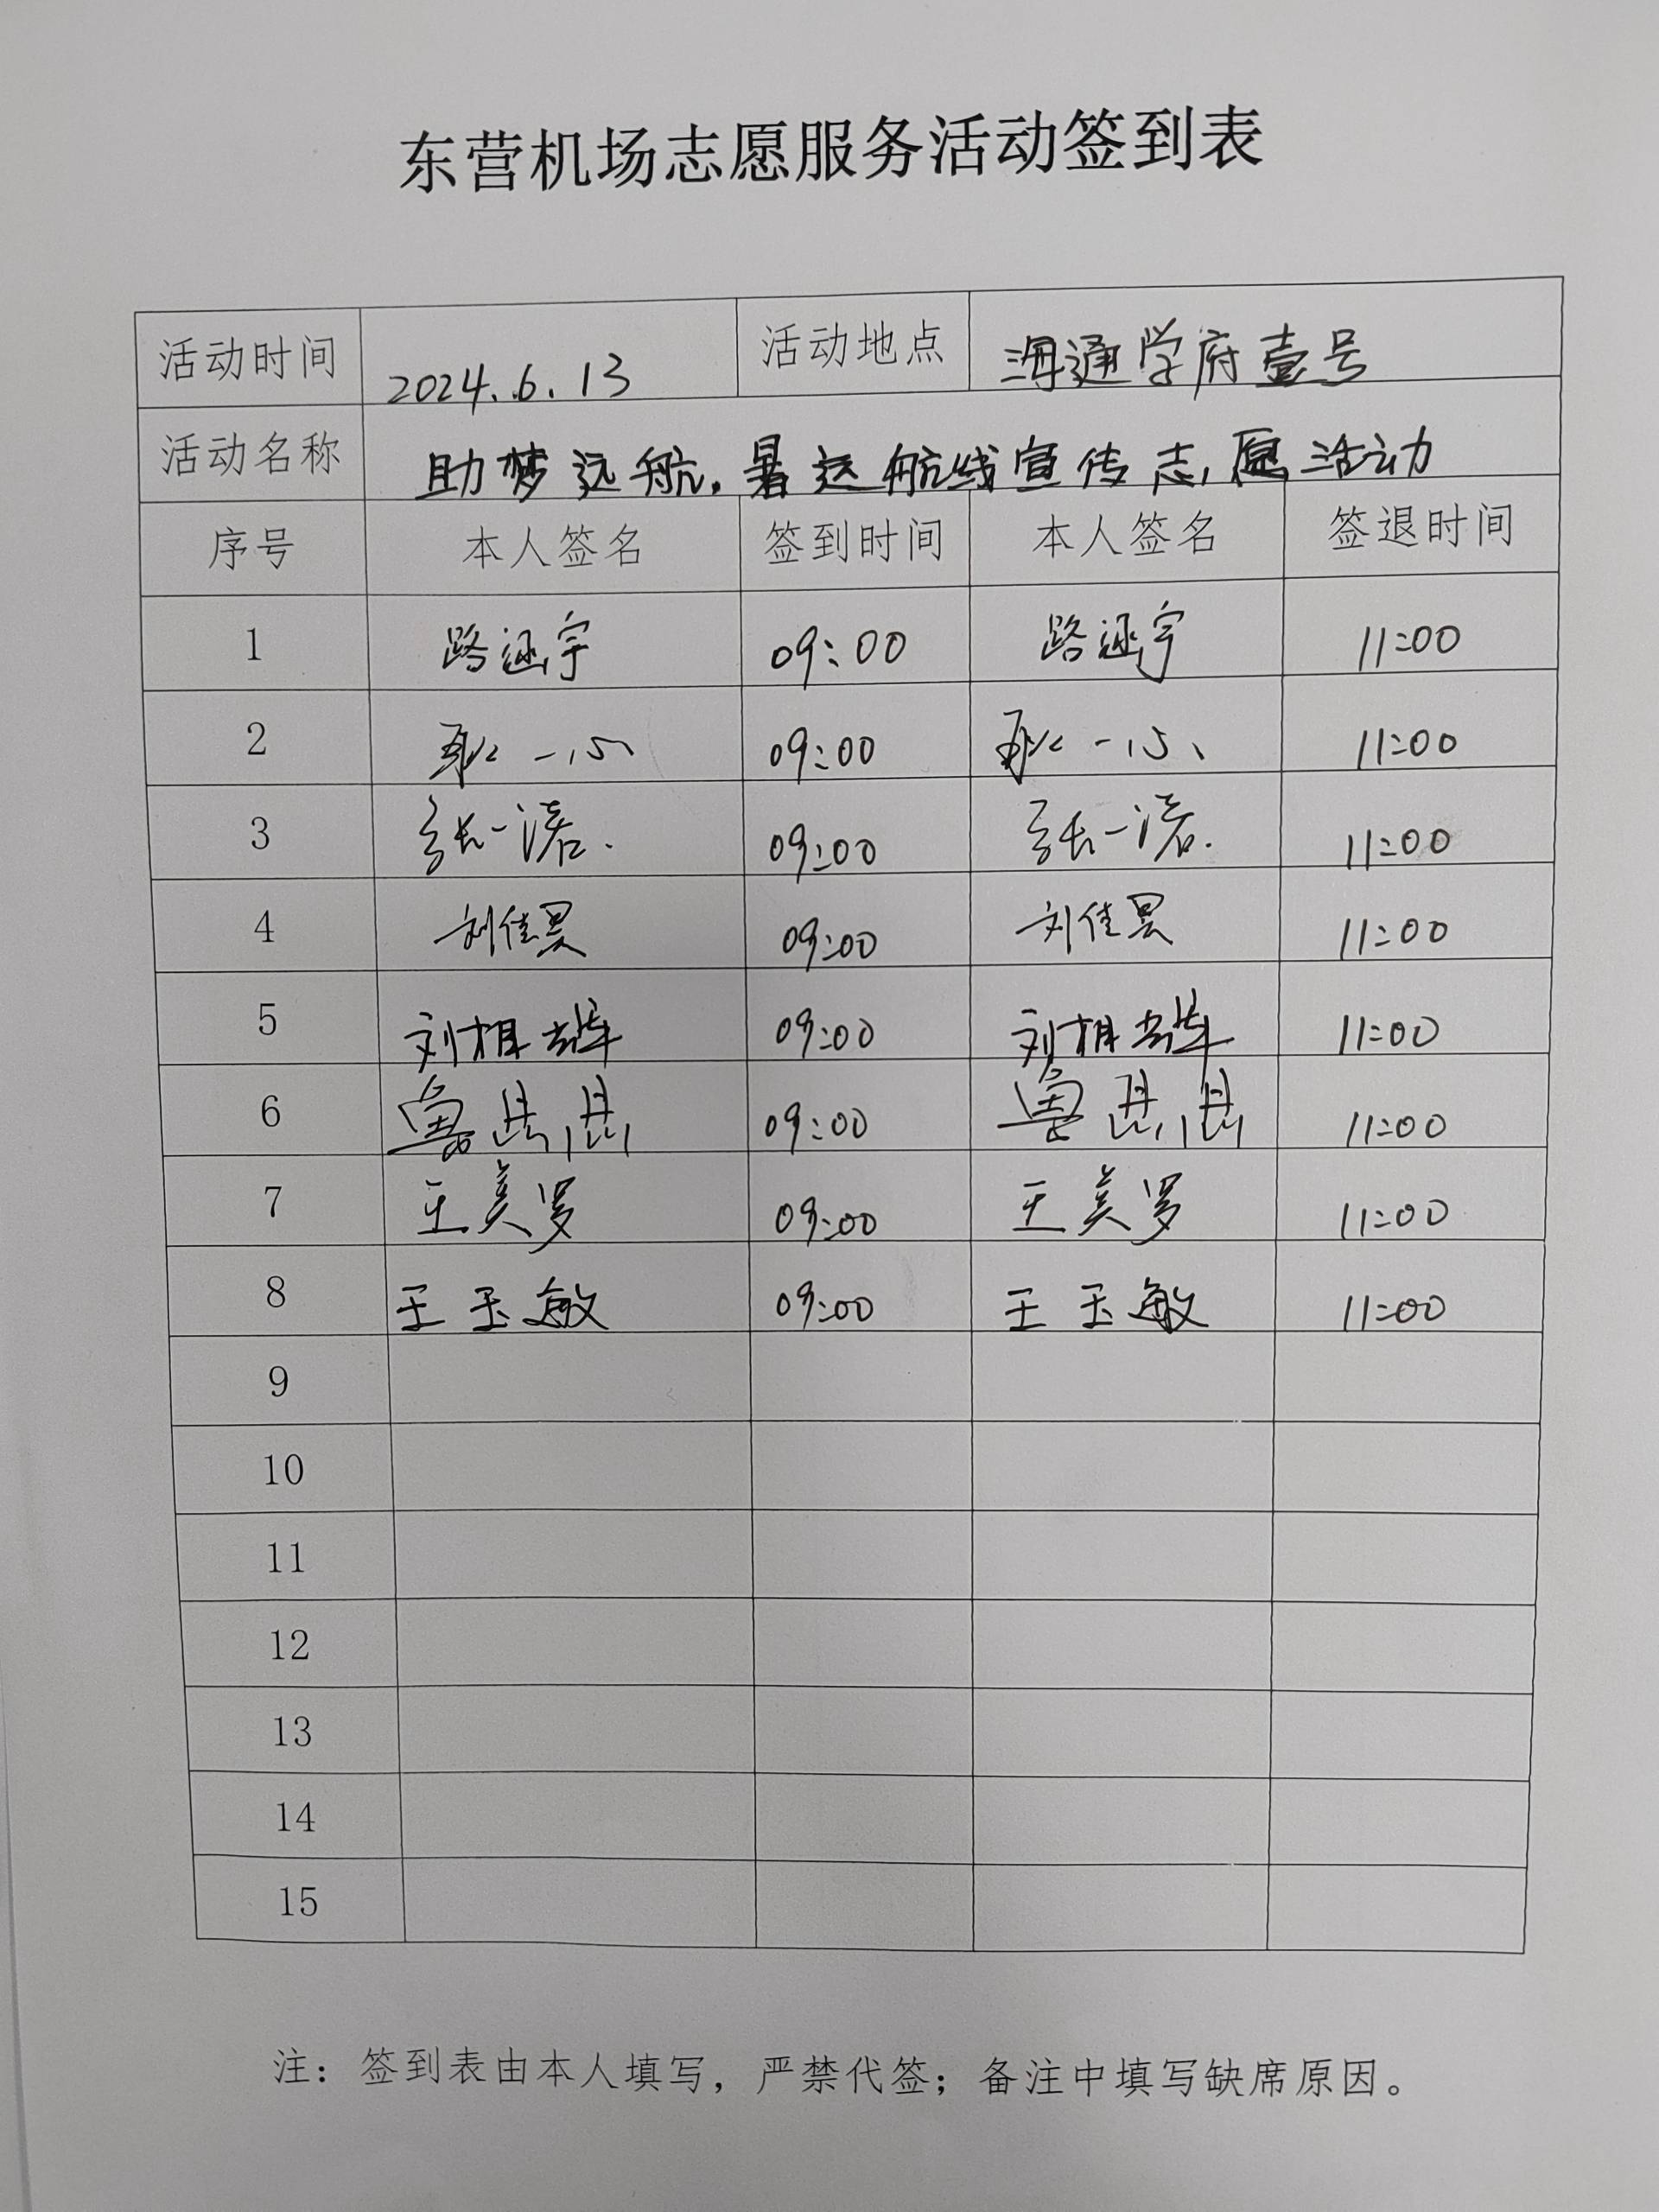 东营机场志愿服务活动签到表
活动时间 2024.6.13 活动地点 海通学府壹号
活动名称 助梦远航,暑运航线宣传志愿活动
序号 本人签名 签到时间 本人签名 签退时间
1 路涵宇 09:00 路涵宇 11:00
2 一心 09:00 一心 11:00
3 张一涛. 09:00 张一涛. 11:00
4 刘佳昊 09:00 刘佳昊 11:00
5 刘相 09:00 刘相 11:00
6 鲁 09:00 鲁 11:00
7 王美罗 09:00 王美罗 11:00
8 王玉敏 09:00 王玉敏 11:00
9
10
11
12
13
14
15
注：签到表由本人填写，严禁代签；备注中填写缺席原因。